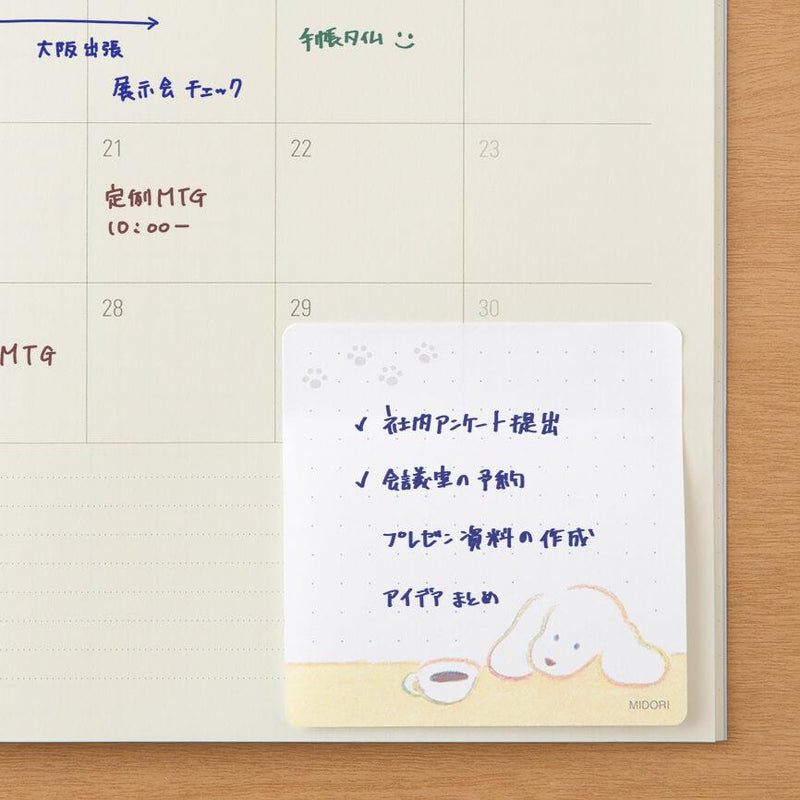 大阪出張
手帳タイム
展示会チェック
21
22
23
定例MTG
10:00ー
28
29
30
MTG
✓ 社内アンケート提出
✓ 会議室の予約
プレゼン資料の作成
アイデアまとめ
MIDORI